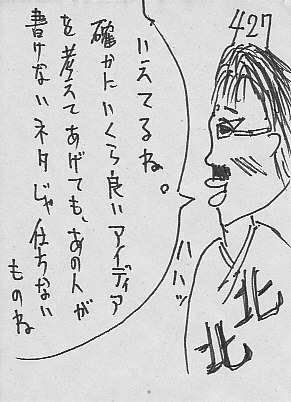 427
いえてるね。
確かにいくら良いアイディア
を考えてあげても、あの人が
書けないネタじゃ仕方ない
ものね
ハハッ
北
北